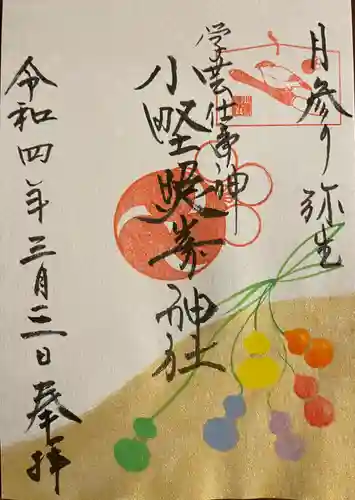 月参り 弥生
学芸仕事の神
小野照崎神社
令和四年三月三日 奉拝